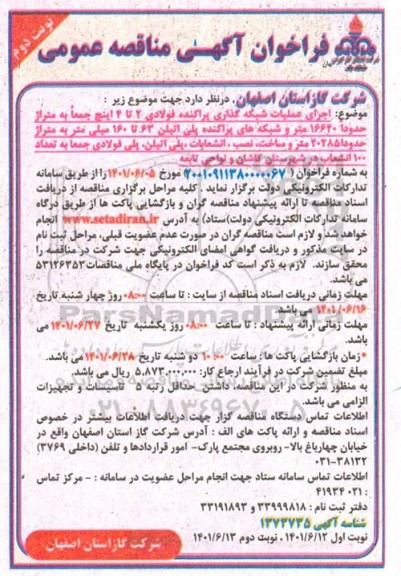 نوبت دوم
فراخوان آگهی مناقصه عمومی
شرکت گاز استان اصفهان، درنظر دارد جهت موضوع زیر :
موضوع: اجرای عملیات شبکه گذاری پراکنده فولادی ۲ تا ۴ اینچ جمعاً به متراژ
حدودا ۱۶۶۴۰ متر و شبکه های پراکنده پلی اتیلن ۶۳ تا ۱۶۰ میلی متر به متراژ
حدودا ۲۰۲۸۵ متر و ساخت، نصب ، انشعابات ،پلی اتیلن، پلی فولادی جمعا به تعداد
۱۰۰ انشعاب در شهرستان کاشان و نواحی تابعه
به شماره فراخوان ( ۲۰۰۱۰۹۱۱۳۸۰۰۰۰۶۷) مورخ ۱۴۰۱/۰۶/۰۵ را از طریق سامانه
تدارکات الکترونیکی دولت برگزار نماید . کلیه مراحل برگزاری مناقصه از دریافت
اسناد مناقصه تا ارائه پیشنهاد مناقصه گران و بازگشایی پاکت ها از طریق درگاه
سامانه تدارکات الکترونیکی دولت(ستاد) به آدرس www.setadiran.ir انجام
خواهد شد و لازم است مناقصه گران در صورت عدم عضویت قبلی، مراحل ثبت نام
در سایت مذکور و دریافت گواهی امضای الکترونیکی جهت شرکت در مناقصه را
محقق سازند. لازم به ذکر است کد فراخوان در پایگاه ملی مناقصات ۵۳۱۲۶۳۵۲
می باشد.
مهلت زمانی دریافت اسناد مناقصه از سایت : تا ساعت ۰۸:۰۰ روز چهار شنبه تاریخ
۱۴۰۱/۰۶/۱۶ می باشد.
مهلت زمانی ارائه پیشنهاد : تا ساعت ۰۸:۰۰ روز یکشنبه تاریخ ۱۴۰۱/۰۶/۲۷ می
باشد.
•زمان بازگشایی پاکت ها : ساعت ۱۰:۰۰ دو شنبه تاریخ ۱۴۰۱/۰۶/۲۸ می باشد.
مبلغ تضمین شرکت در فرآیند ارجاع کار: ۵,۸۷۳,۰۰۰,۰۰۰ ریال می باشد.
به منظور شرکت در این مناقصه داشتن حداقل رتبه ۵ تاسیسات و تجهیزات
الزامی می باشد.
اطلاعات تماس دستگاه مناقصه گزار جهت دریافت اطلاعات بیشتر در خصوص
اسناد مناقصه و ارائه پاکت های الف : آدرس شرکت گاز استان اصفهان واقع در
خیابان چهارباغ بالا- روبروی مجتمع پارک- امور قراردادها و تلفن (داخلی ۳۷۶۹)
۰۳۱-۳۸۱۳۲
اطلاعات تماس سامانه ستاد جهت انجام مراحل عضویت در سامانه : - مرکز تماس
: ۰۲۱ ۴۱۹۳۴
دفتر ثبت نام : ۳۳۹۹۹۸۱۸ و ۳۳۱۹۱۸۹۳
شناسه آگهی ۱۳۷۳۷۳۵
نوبت اول ۱۴۰۱/۶/۱۲ ، نوبت دوم ۱۴۰۱/۶/۱۳
شرکت گاز استان اصفهان
ParsNamadData
۰۲۱-۸۸۳۴۹۶۷۰-۵